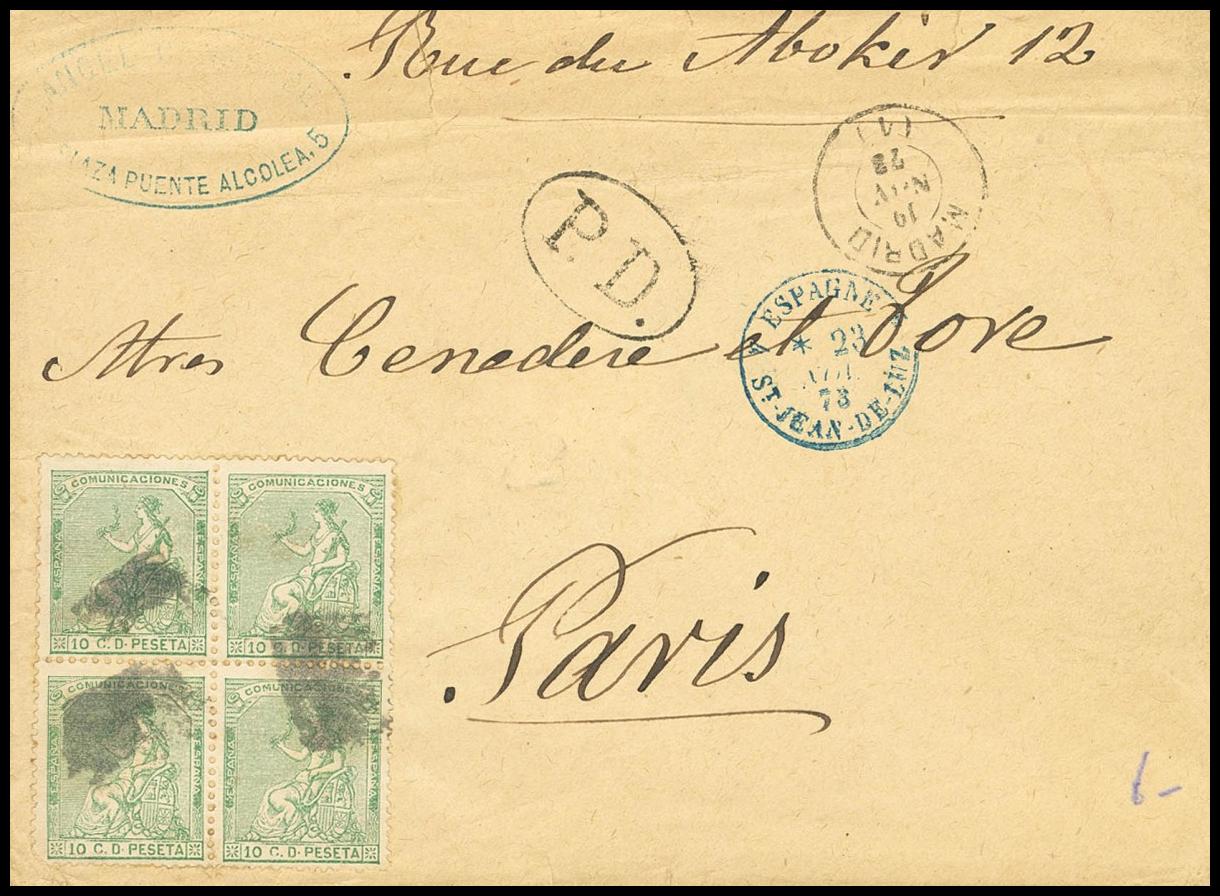 Rue du Abokir 12
ANGEL
MADRID
PLAZA PUENTE ALCOLEA, 5
P.D.
MADRID
19
NOV
73
(1)
ESPAGNE
* 23
NOV.
73
ST-JEAN-DE-LUZ
et
Paris
COMUNICACIONES
ESPAÑA
ESPAÑA
10 C. D. PESETA
COMUNICACIONES
ESPAÑA
ESPAÑA
10 C. D. PESETA
COMUNICACIONES
ESPAÑA
ESPAÑA
10 C. D. PESETA
COMUNICACIONES
ESPAÑA
ESPAÑA
10 C. D. PESETA
6-